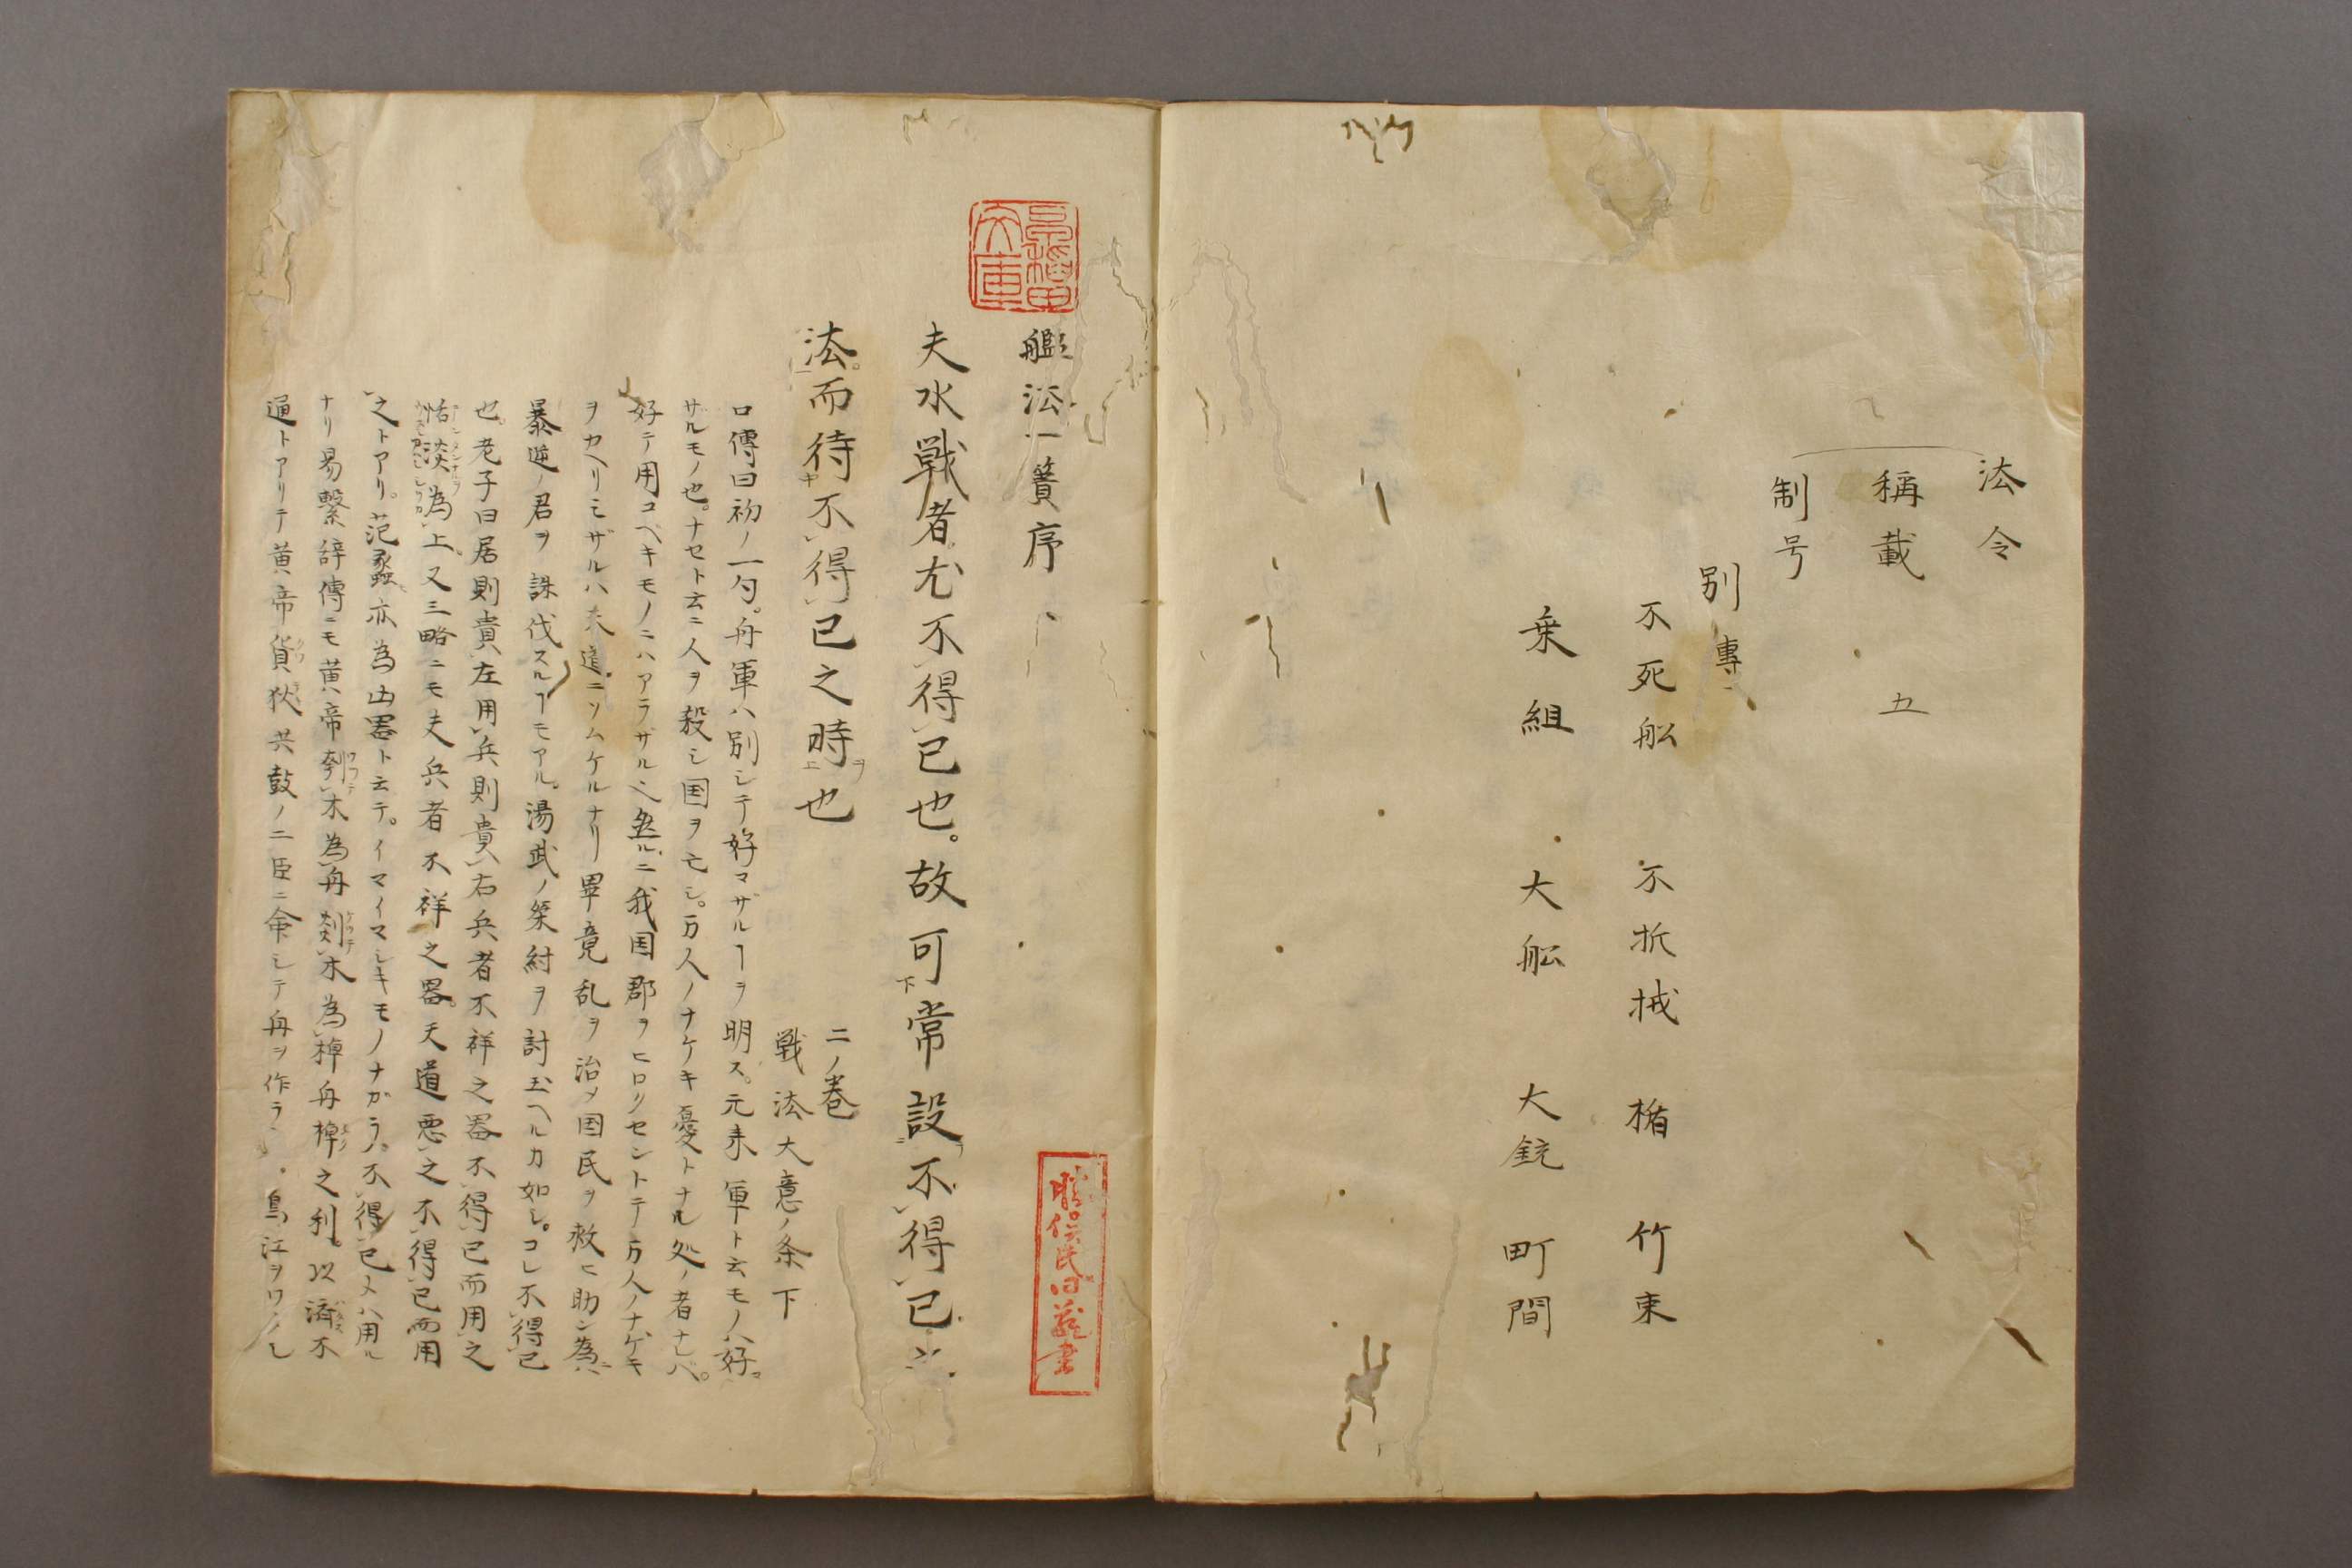 法令
稱載　五
制号
別專
不死舩　不折械　楯　竹束
乗組　大舩　大銃　町間
艦法一簣序
夫水戦者尤不得已也。故可常設不得已之
法。而待不得已之時也
二ノ巻
戦法大意ノ条下
口傳曰初ノ一勺。舟軍ハ別シテ好マザルヿヲ明ス。元来軍ト云モノハ好。
サルモノ也。ナセト云ニ人ヲ殺シ国ヲモシ。万人ノナケキ憂トナル処ノ者ナレバ。
好テ用ユベキモノニハアラザル也然ルニ我国郡ヲヒロリセントテ万人ノナゲキ
ヲカヘリミザルハ天道ニソムケルナリ畢竟乱ヲ治メ国民ヲ救ヒ助ン為ニハ
暴逆ノ君ヲ誅伐スルヿモアル。湯武ノ桀紂ヲ討玉ヘルカ如シ。コレ不得已
也。老子曰居則貴左用兵則貴右兵者不祥之器不得已而用之
恬淡為上。又三略ニモ夫兵者不祥之器。天道悪之不得已而用
之トアリ。范蠡亦為凶器ト云テ。イマイマシキモノナガラ。不得已メハ用ル
ナリ易繋辞傳ニモ黄帝刳木為舟剡木為棹舟棹之利。以濟不
通トアリテ黄帝貨狄共鼓ノ二臣ニ命シテ舟ヲ作ラ 烏江ヲワ シ
文庫